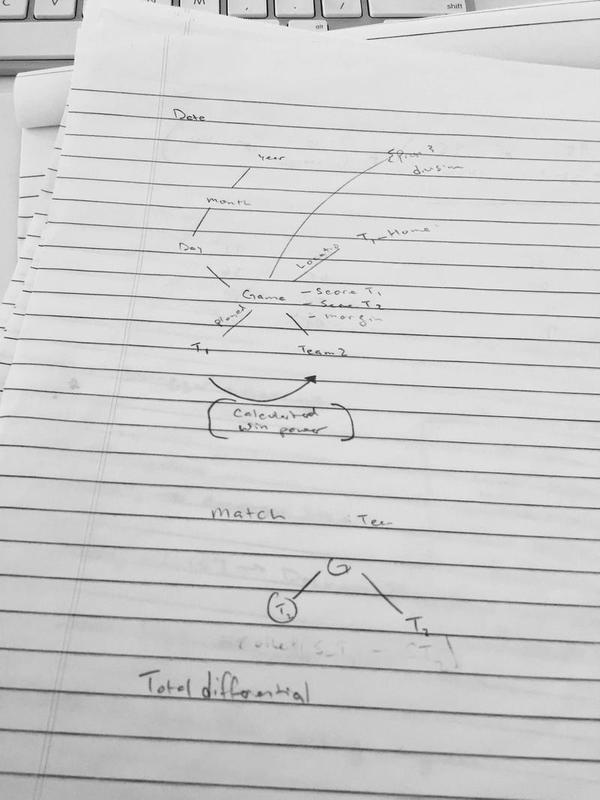 shift
alt
Date
Year
division
month
T1 - Home
Day
Location
Game - Score T1
- Score T2
- margin
played
T1
Team 2
[Calculated
win power]
match
Tea
G
T2
Total differential